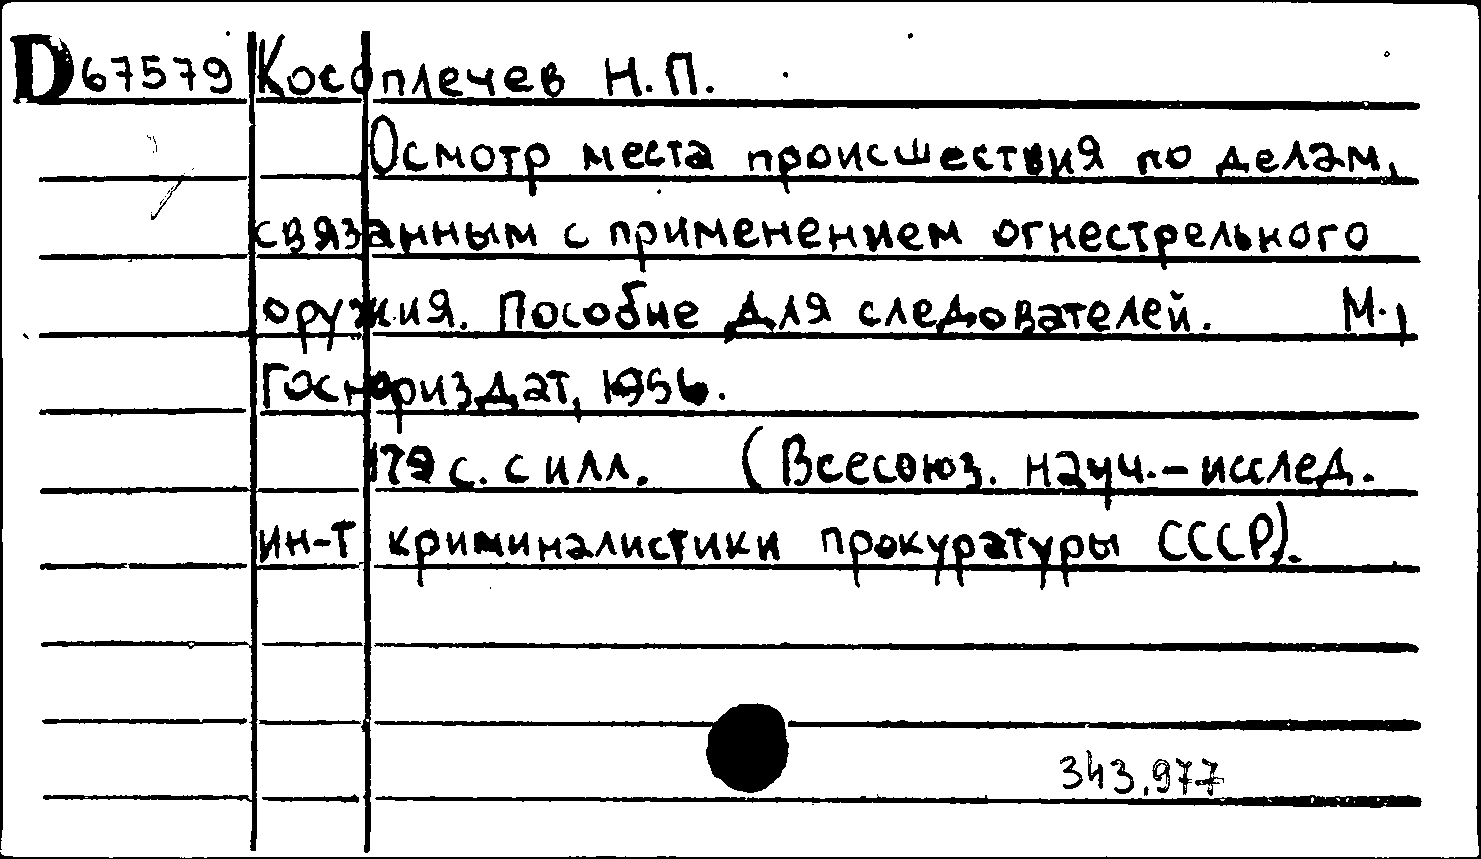 D 67579 Косоплечев Н.П.
Осмотр места происшествия по делам,
связанным с применением огнестрельного
оружия. Пособие для следователей. М.,
Госюриздат, 1956.
179 с. с илл. (Всесоюз. науч.-исслед.
ин-т криминалистики прокуратуры СССР).
343.977